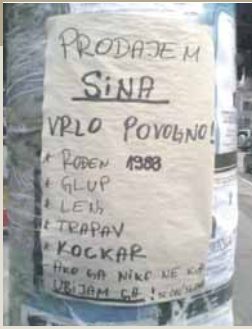 PRODAJEM
SINA
VRLO POVOLJNO!
* ROĐEN 1988
* GLUP
* LENJ
* TRAPAV
* KOCKAR
AKO GA NIKO NE
UBIJAM GA!